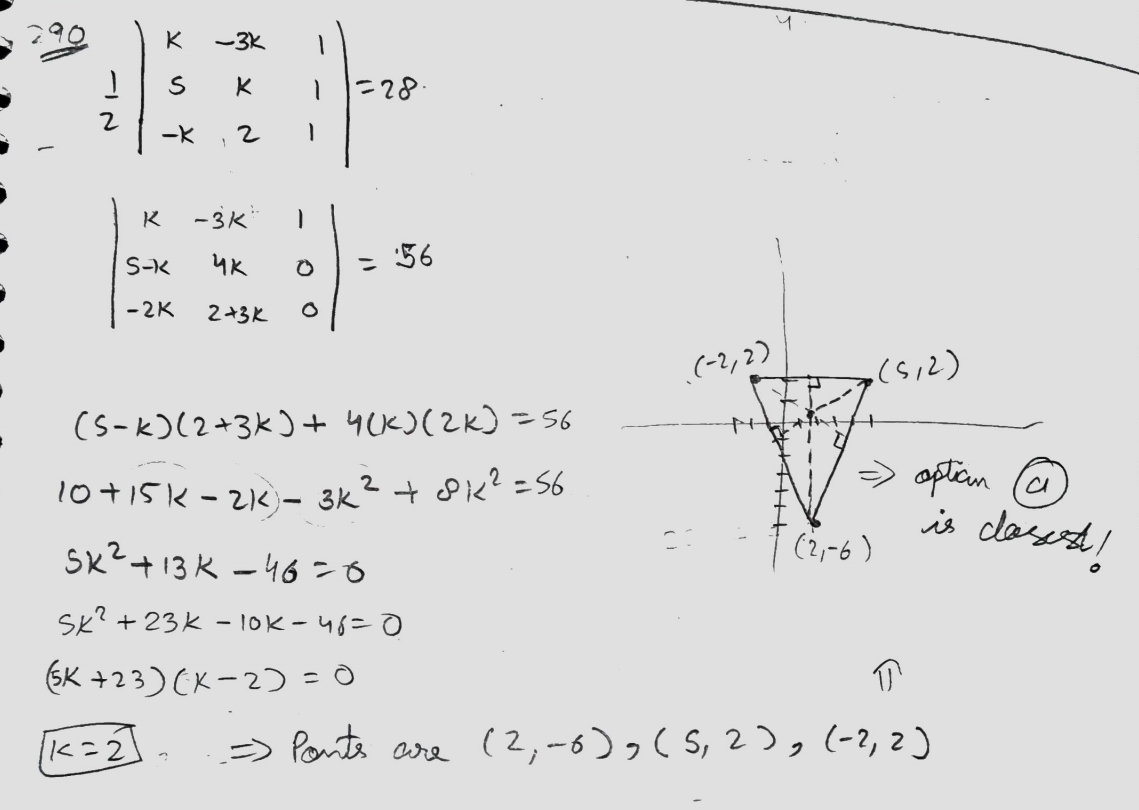 290
1/2 | K -3K 1 |
| 5 K 1 | = 28.
| -K , 2 1 |
| K -3K 1 |
| 5-K 4K 0 | = 56
| -2K 2+3K 0 |
(5-K)(2+3K) + 4(K)(2K) = 56
10 + 15K - 2K - 3K² + 8K² = 56
5K² + 13K - 46 = 0
5K² + 23K - 10K - 46 = 0
(5K + 23)(K - 2) = 0
K = 2 . ⇒ Ponts are (2, -6), (5, 2), (-2, 2)
⇑
(-2, 2)
(5, 2)
(2, -6)
⇒ option (a)
is closest!